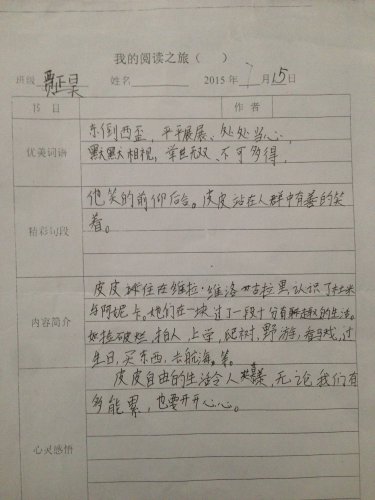 我的阅读之旅（ ）
班级 贾正昊 姓名 2015年7月15日
书目 作者
优美词语
东倒西歪，平平展展、处处当心，
默默相视，举世无双、不可多得，
精彩句段
他笑的前仰后合。皮皮站在人群中有善的笑
着。
内容简介
皮皮 住在维拉·维洛 古拉里认识了杜米
与阿妮卡。她们在一块过了一段十分有趣的生活。
如捡破烂，拍人，上学，爬树，野游，看马戏，过
生日，买东西，去航海。等。
心灵感悟
皮皮自由的生活令人羡慕，无论我们有
多能累，也要开开心心。